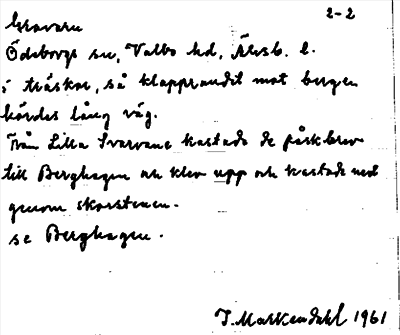 2-2
Gravarn
Ödeborgs sn, Valbo hd, Älvsb. l.
i träskor, så klapprandet mot bergen
hördes lång väg.
Från Lilla Svarvane kastade de påskbrev
till Berghagen och klev upp och kastade ned
genom skorstenen.
se Berghagen.
J. Markendahl 1961